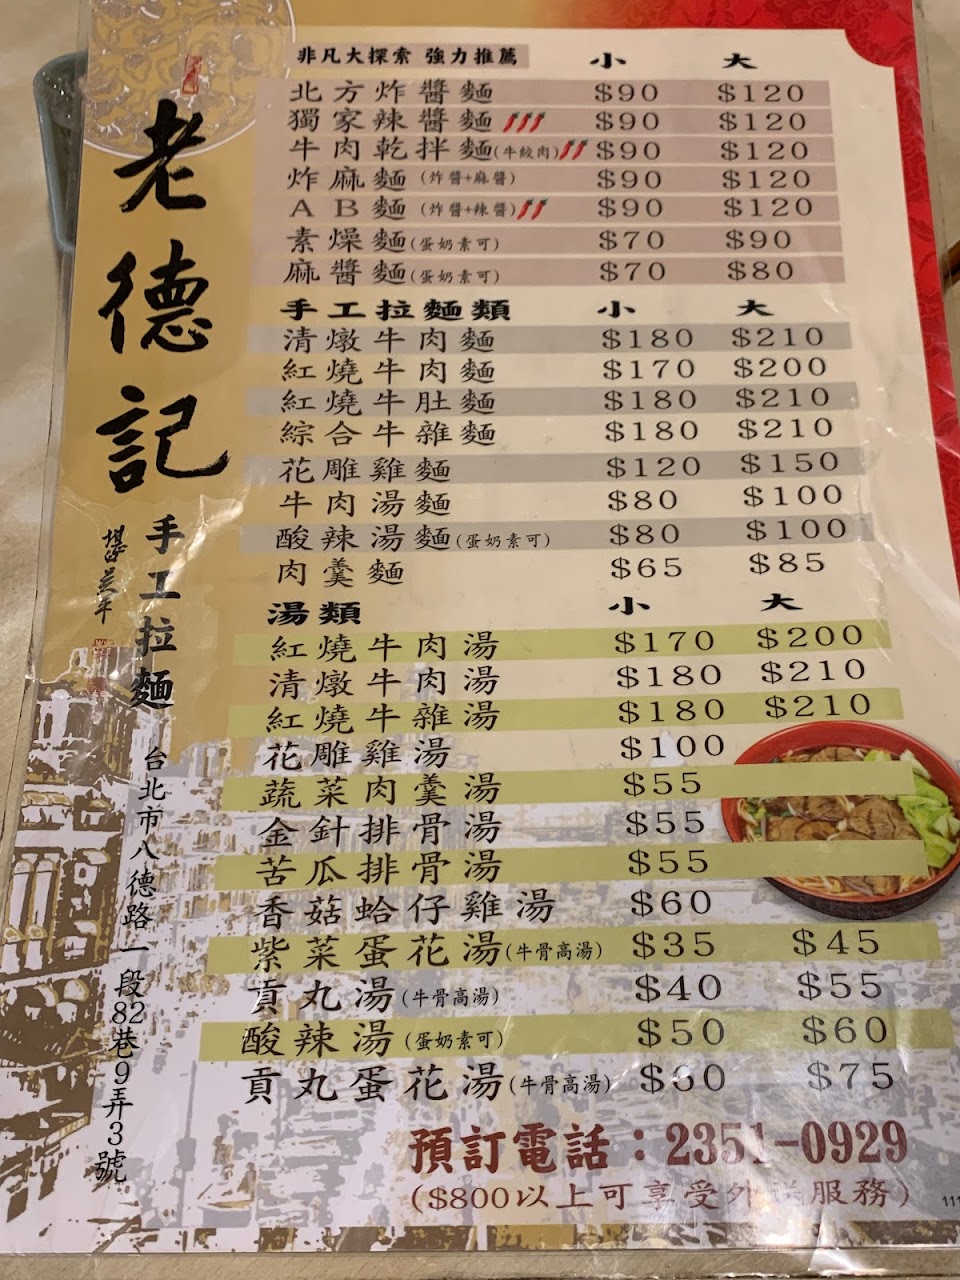 老德記
手工拉麵
台北市八德路一段82巷9弄3號
非凡大探索 強力推薦 小 大
北方炸醬麵 $90 $120
獨家辣醬麵 $90 $120
牛肉乾拌麵(牛絞肉) $90 $120
炸麻麵(炸醬+麻醬) $90 $120
AB麵(炸醬+辣醬) $90 $120
素燥麵(蛋奶素可) $70 $90
麻醬麵(蛋奶素可) $70 $80
手工拉麵類 小 大
清燉牛肉麵 $180 $210
紅燒牛肉麵 $170 $200
紅燒牛肚麵 $180 $210
綜合牛雜麵 $180 $210
花雕雞麵 $120 $150
牛肉湯麵 $80 $100
酸辣湯麵(蛋奶素可) $80 $100
肉羹麵 $65 $85
湯類 小 大
紅燒牛肉湯 $170 $200
清燉牛肉湯 $180 $210
紅燒牛雜湯 $180 $210
花雕雞湯 $100
蔬菜肉羹湯 $55
金針排骨湯 $55
苦瓜排骨湯 $55
香菇蛤仔雞湯 $60
紫菜蛋花湯(牛骨高湯) $35 $45
貢丸湯(牛骨高湯) $40 $55
酸辣湯(蛋奶素可) $50 $60
貢丸蛋花湯(牛骨高湯) $60 $75
預訂電話：2351-0929
($800以上可享受外送服務)
111